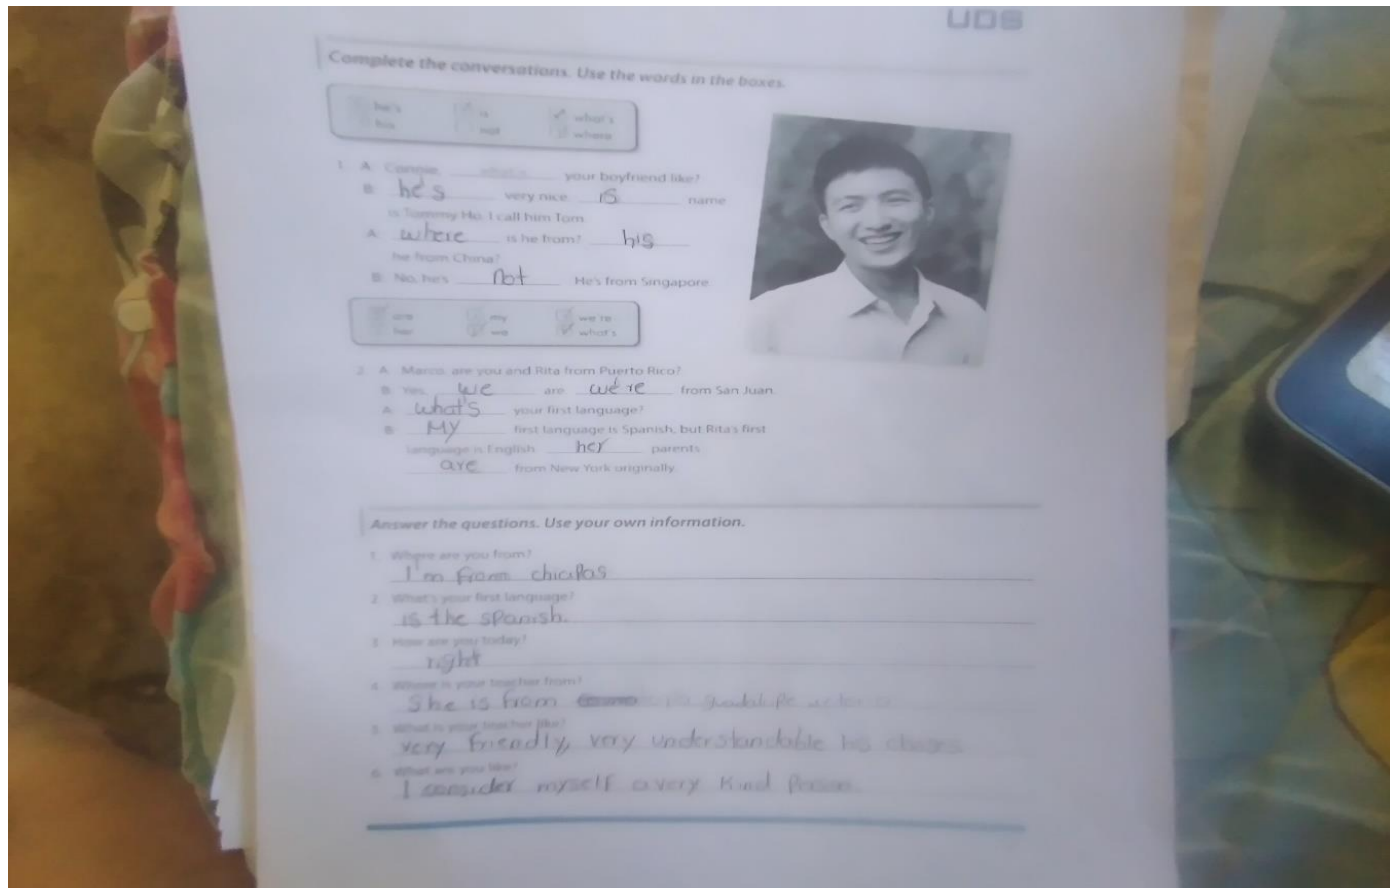 UDS
Complete the conversations. Use the words in the boxes.
he's is what's
his not where
1. A. Connie, what's your boyfriend like?
B. he's very nice. is name
is Tommy Ho. I call him Tom.
A. where is he from? his
he from China?
B. No, he's not He's from Singapore
are my we're
her we what's
2. A. Marco, are you and Rita from Puerto Rico?
B. Yes, we are we're from San Juan.
A. what's your first language?
B. My first language is Spanish, but Rita's first
language is English her parents
are from New York originally.
Answer the questions. Use your own information.
1. Where are you from?
I'm from chiapas
2. What's your first language?
is the spanish.
3. How are you today?
right
4. Where is your teacher from?
She is from
5. What is your teacher like?
very friendly, very understandable his
6. What are you like?
I consider myself a very kind person.